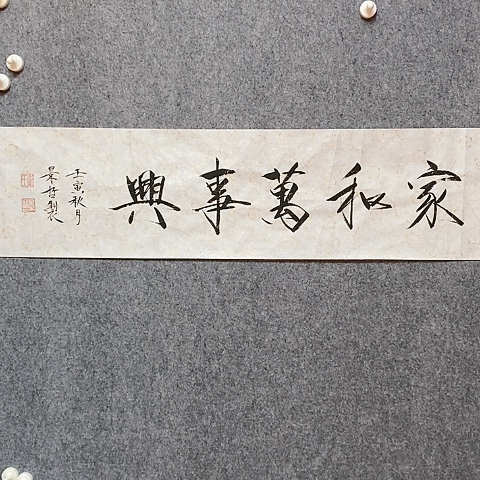 家和萬事興
壬寅秋月